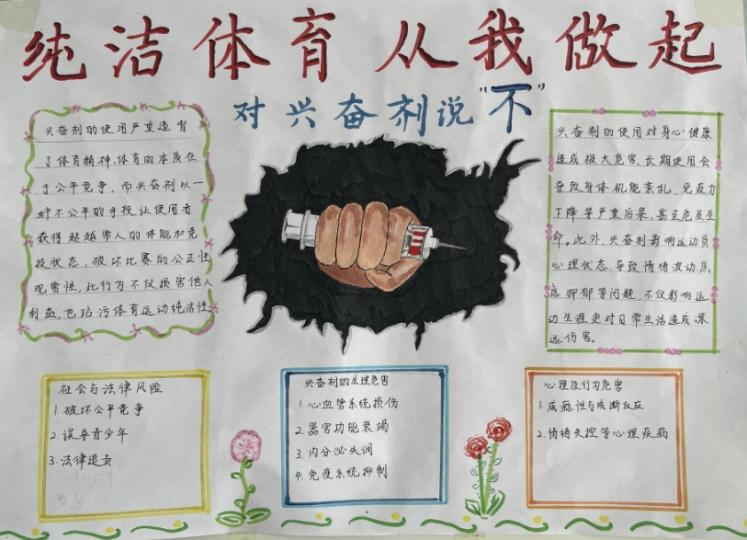 纯洁体育从我做起
对兴奋剂说“不”
兴奋剂的使用严重违背
了体育精神,体育的本质在
于公平竞争,而兴奋剂以一
种不公平的手段让使用者
获得超越常人的体能和竞
技状态,破坏比赛的公正性
观赏性,此行为不仅损害他人
利益,也玷污体育运动纯洁性
兴奋剂的使用对身心健康
造成极大危害,长期使用会
导致身体机能紊乱,免疫力
下降等严重后果,甚至危及生
命。此外,兴奋剂影响运动员
心理状态,导致情绪波动,焦
虑抑郁等问题,不仅影响运
动生涯更对日常生活造成深
远伤害。
社会与法律风险
1.破坏公平竞争
2.误导青少年
3.法律追责
兴奋剂的生理危害
1.心血管系统损伤
2.器官功能衰竭
3.内分泌失调
4.免疫系统抑制
心理及行为危害
1.成瘾性与戒断反应
2.情绪失控等心理疾病